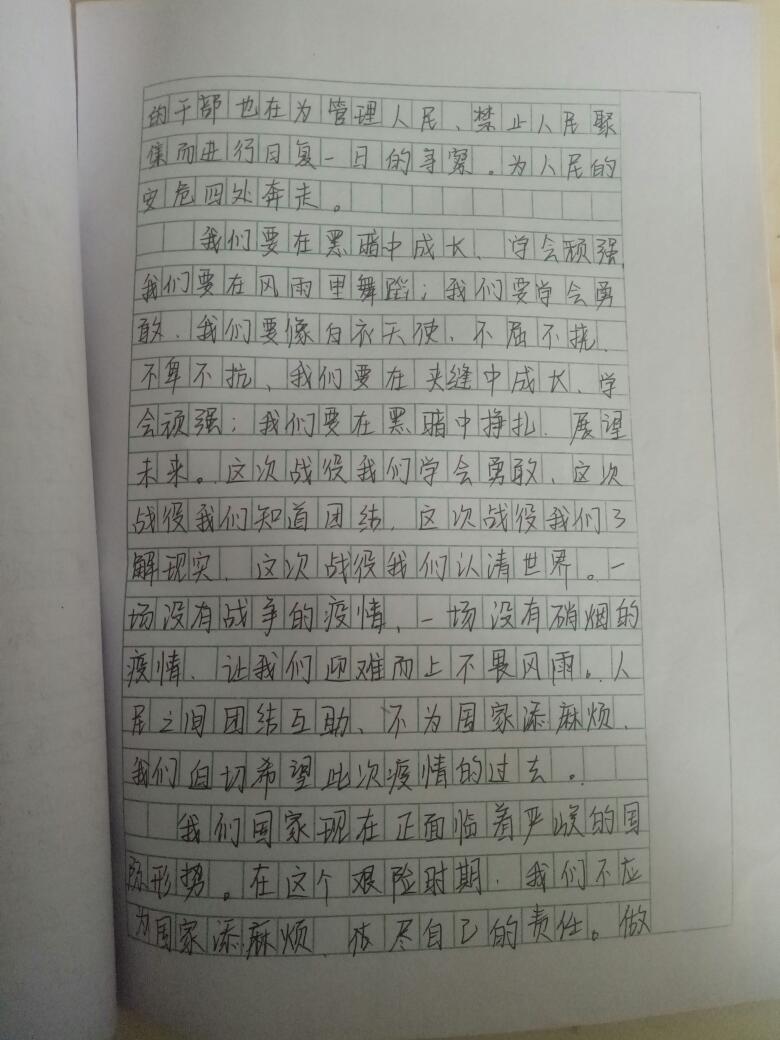 的干部也在为管理人民、禁止人民聚
集而进行日复一日的寻察。为人民的
安危四处奔走。
我们要在黑暗中成长、学会顽强,
我们要在风雨里舞蹈；我们要学会勇
敢、我们要像白衣天使、不屈不挠、
不卑不抗、我们要在夹缝中成长、学
会顽强；我们要在黑暗中挣扎、展望
未来。这次战役我们学会勇敢、这次
战役我们知道团结、这次战役我们了
解现实、这次战役我们认清世界。一
场没有战争的疫情、一场没有硝烟的
疫情、让我们迎难而上不畏风雨。人
民之间团结互助、不为国家添麻烦、
我们自切希望此次疫情的过去。
我们国家现在正面临着严峻的国
际形势。在这个艰险时期、我们不应
为国家添麻烦、尽自己的责任。做